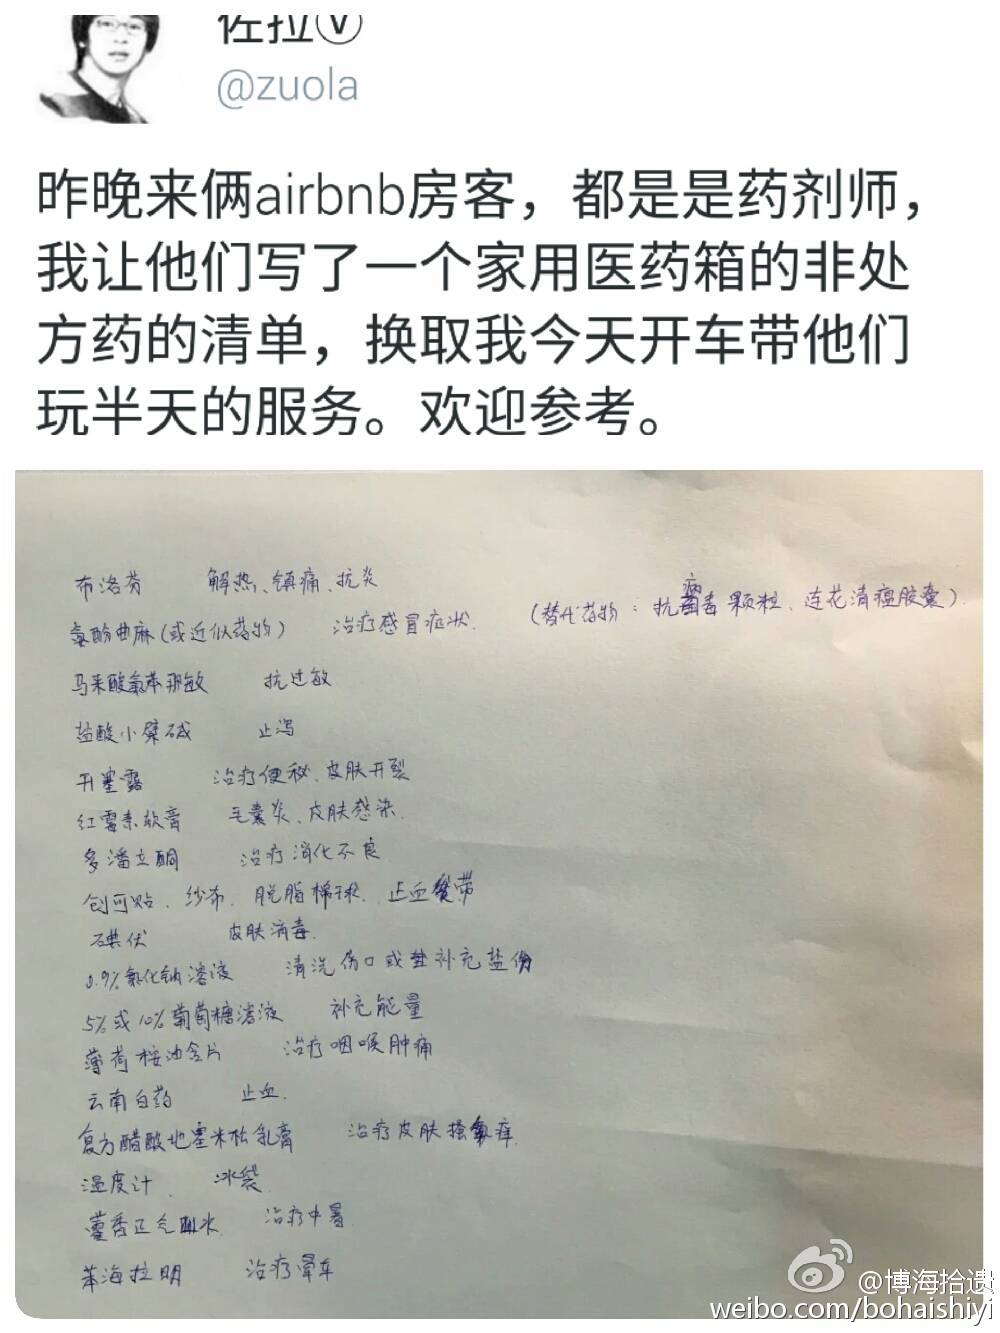 佐拉Ⓥ
@zuola
昨晚来俩airbnb房客，都是是药剂师，
我让他们写了一个家用医药箱的非处
方药的清单，换取我今天开车带他们
玩半天的服务。欢迎参考。
布洛芬 解热、镇痛、抗炎
氨酚曲麻(或近似药物) 治疗感冒症状. (替代药物：抗病毒颗粒、连花清瘟胶囊)
马来酸氯苯那敏 抗过敏
盐酸小檗碱 止泻
开塞露 治疗便秘、皮肤开裂
红霉素软膏 毛囊炎、皮肤感染.
多潘立酮 治疗消化不良
创可贴、纱布、脱脂棉球、止血绷带
碘伏 皮肤消毒.
0.9%氯化钠溶液 清洗伤口或补充盐份
5%或10%葡萄糖溶液 补充能量
薄荷桉油含片 治疗咽喉肿痛
云南白药 止血.
复方醋酸地塞米松乳膏 治疗皮肤搔痒.
温度计、 冰袋
藿香正气水 治疗中暑
苯海拉明 治疗晕车
@博海拾遗
weibo.com/bohaishiyi